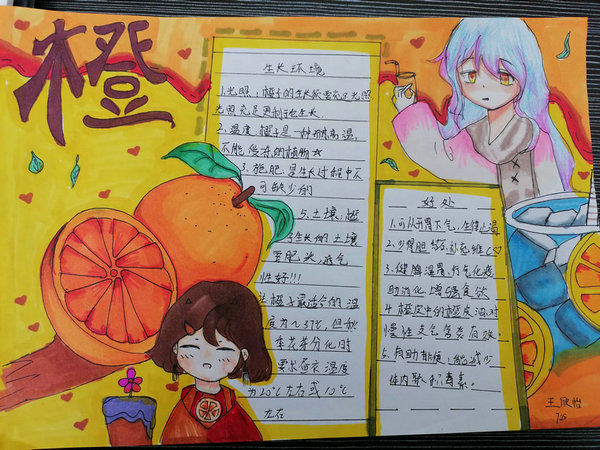 橙
生长环境
1.光照，橙子的生长需要充足光照
光照充足更利于生长
2.温度，橙子是一种耐高温，
不能受冻的植物
3.施肥，是生长过程中不
可缺少的
5.土壤，橙
子生长的土壤
要肥沃，透气
性好!!!
橙子最适合的温
度为 37℃，但秋
季花芽分化时
要求昼夜温度
为20℃左右或10℃
左右
好处
1.可以开胃下气，生津止渴
2.少胃胆 补充维C
3.健脾温胃，行气化痰
助消化，增强食欲
4.橙皮中的橙皮油对
慢性支气管炎有效。
5.有助排便，能减少
体内积毒素。
王欣怡